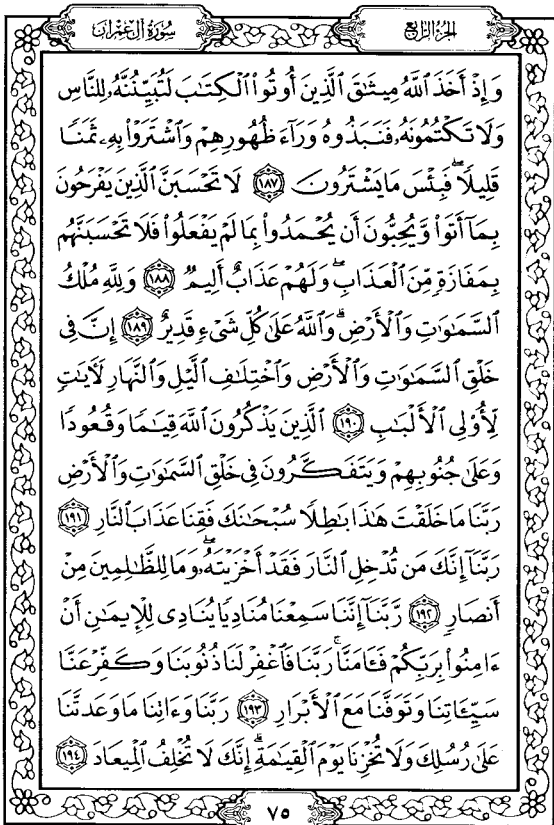 الجزء الرابع
سورة آل عمران
وَإِذْ أَخَذَ ٱللَّهُ مِيثَٰقَ ٱلَّذِينَ أُوتُوا۟ ٱلْكِتَٰبَ لَتُبَيِّنُنَّهُۥ لِلنَّاسِ
وَلَا تَكْتُمُونَهُۥ فَنَبَذُوهُ وَرَآءَ ظُهُورِهِمْ وَٱشْتَرَوْا۟ بِهِۦ ثَمَنًا
قَلِيلًا ۖ فَبِئْسَ مَا يَشْتَرُونَ ١٨٧ لَا تَحْسَبَنَّ ٱلَّذِينَ يَفْرَحُونَ
بِمَآ أَتَوا۟ وَّيُحِبُّونَ أَن يُحْمَدُوا۟ بِمَا لَمْ يَفْعَلُوا۟ فَلَا تَحْسَبَنَّهُم
بِمَفَازَةٍ مِّنَ ٱلْعَذَابِ ۖ وَلَهُمْ عَذَابٌ أَلِيمٌ ١٨٨ وَلِلَّهِ مُلْكُ
ٱلسَّمَٰوَٰتِ وَٱلْأَرْضِ ۗ وَٱللَّهُ عَلَىٰ كُلِّ شَىْءٍ قَدِيرٌ ١٨٩ إِنَّ فِى
خَلْقِ ٱلسَّمَٰوَٰتِ وَٱلْأَرْضِ وَٱخْتِلَٰفِ ٱلَّيْلِ وَٱلنَّهَارِ لَءَايَٰتٍ
لِّأُو۟لِى ٱلْأَلْبَٰبِ ١٩٠ ٱلَّذِينَ يَذْكُرُونَ ٱللَّهَ قِيَٰمًا وَقُعُودًا
وَعَلَىٰ جُنُوبِهِمْ وَيَتَفَكَّرُونَ فِى خَلْقِ ٱلسَّمَٰوَٰتِ وَٱلْأَرْضِ
رَبَّنَا مَا خَلَقْتَ هَٰذَا بَٰطِلًا سُبْحَٰنَكَ فَقِنَا عَذَابَ ٱلنَّارِ ١٩١
رَبَّنَآ إِنَّكَ مَن تُدْخِلِ ٱلنَّارَ فَقَدْ أَخْزَيْتَهُۥ ۖ وَمَا لِلظَّٰلِمِينَ مِنْ
أَنصَارٍ ١٩٢ رَّبَّنَآ إِنَّنَا سَمِعْنَا مُنَادِيًا يُنَادِى لِلْإِيمَٰنِ أَنْ
ءَامِنُوا۟ بِرَبِّكُمْ فَـَٔامَنَّا ۚ رَبَّنَا فَٱغْفِرْ لَنَا ذُنُوبَنَا وَكَفِّرْ عَنَّا
سَيِّـَٔاتِنَا وَتَوَفَّنَا مَعَ ٱلْأَبْرَارِ ١٩٣ رَبَّنَا وَءَاتِنَا مَا وَعَدتَّنَا
عَلَىٰ رُسُلِكَ وَلَا تُخْزِنَا يَوْمَ ٱلْقِيَٰمَةِ ۗ إِنَّكَ لَا تُخْلِفُ ٱلْمِيعَادَ ١٩٤
٧٥